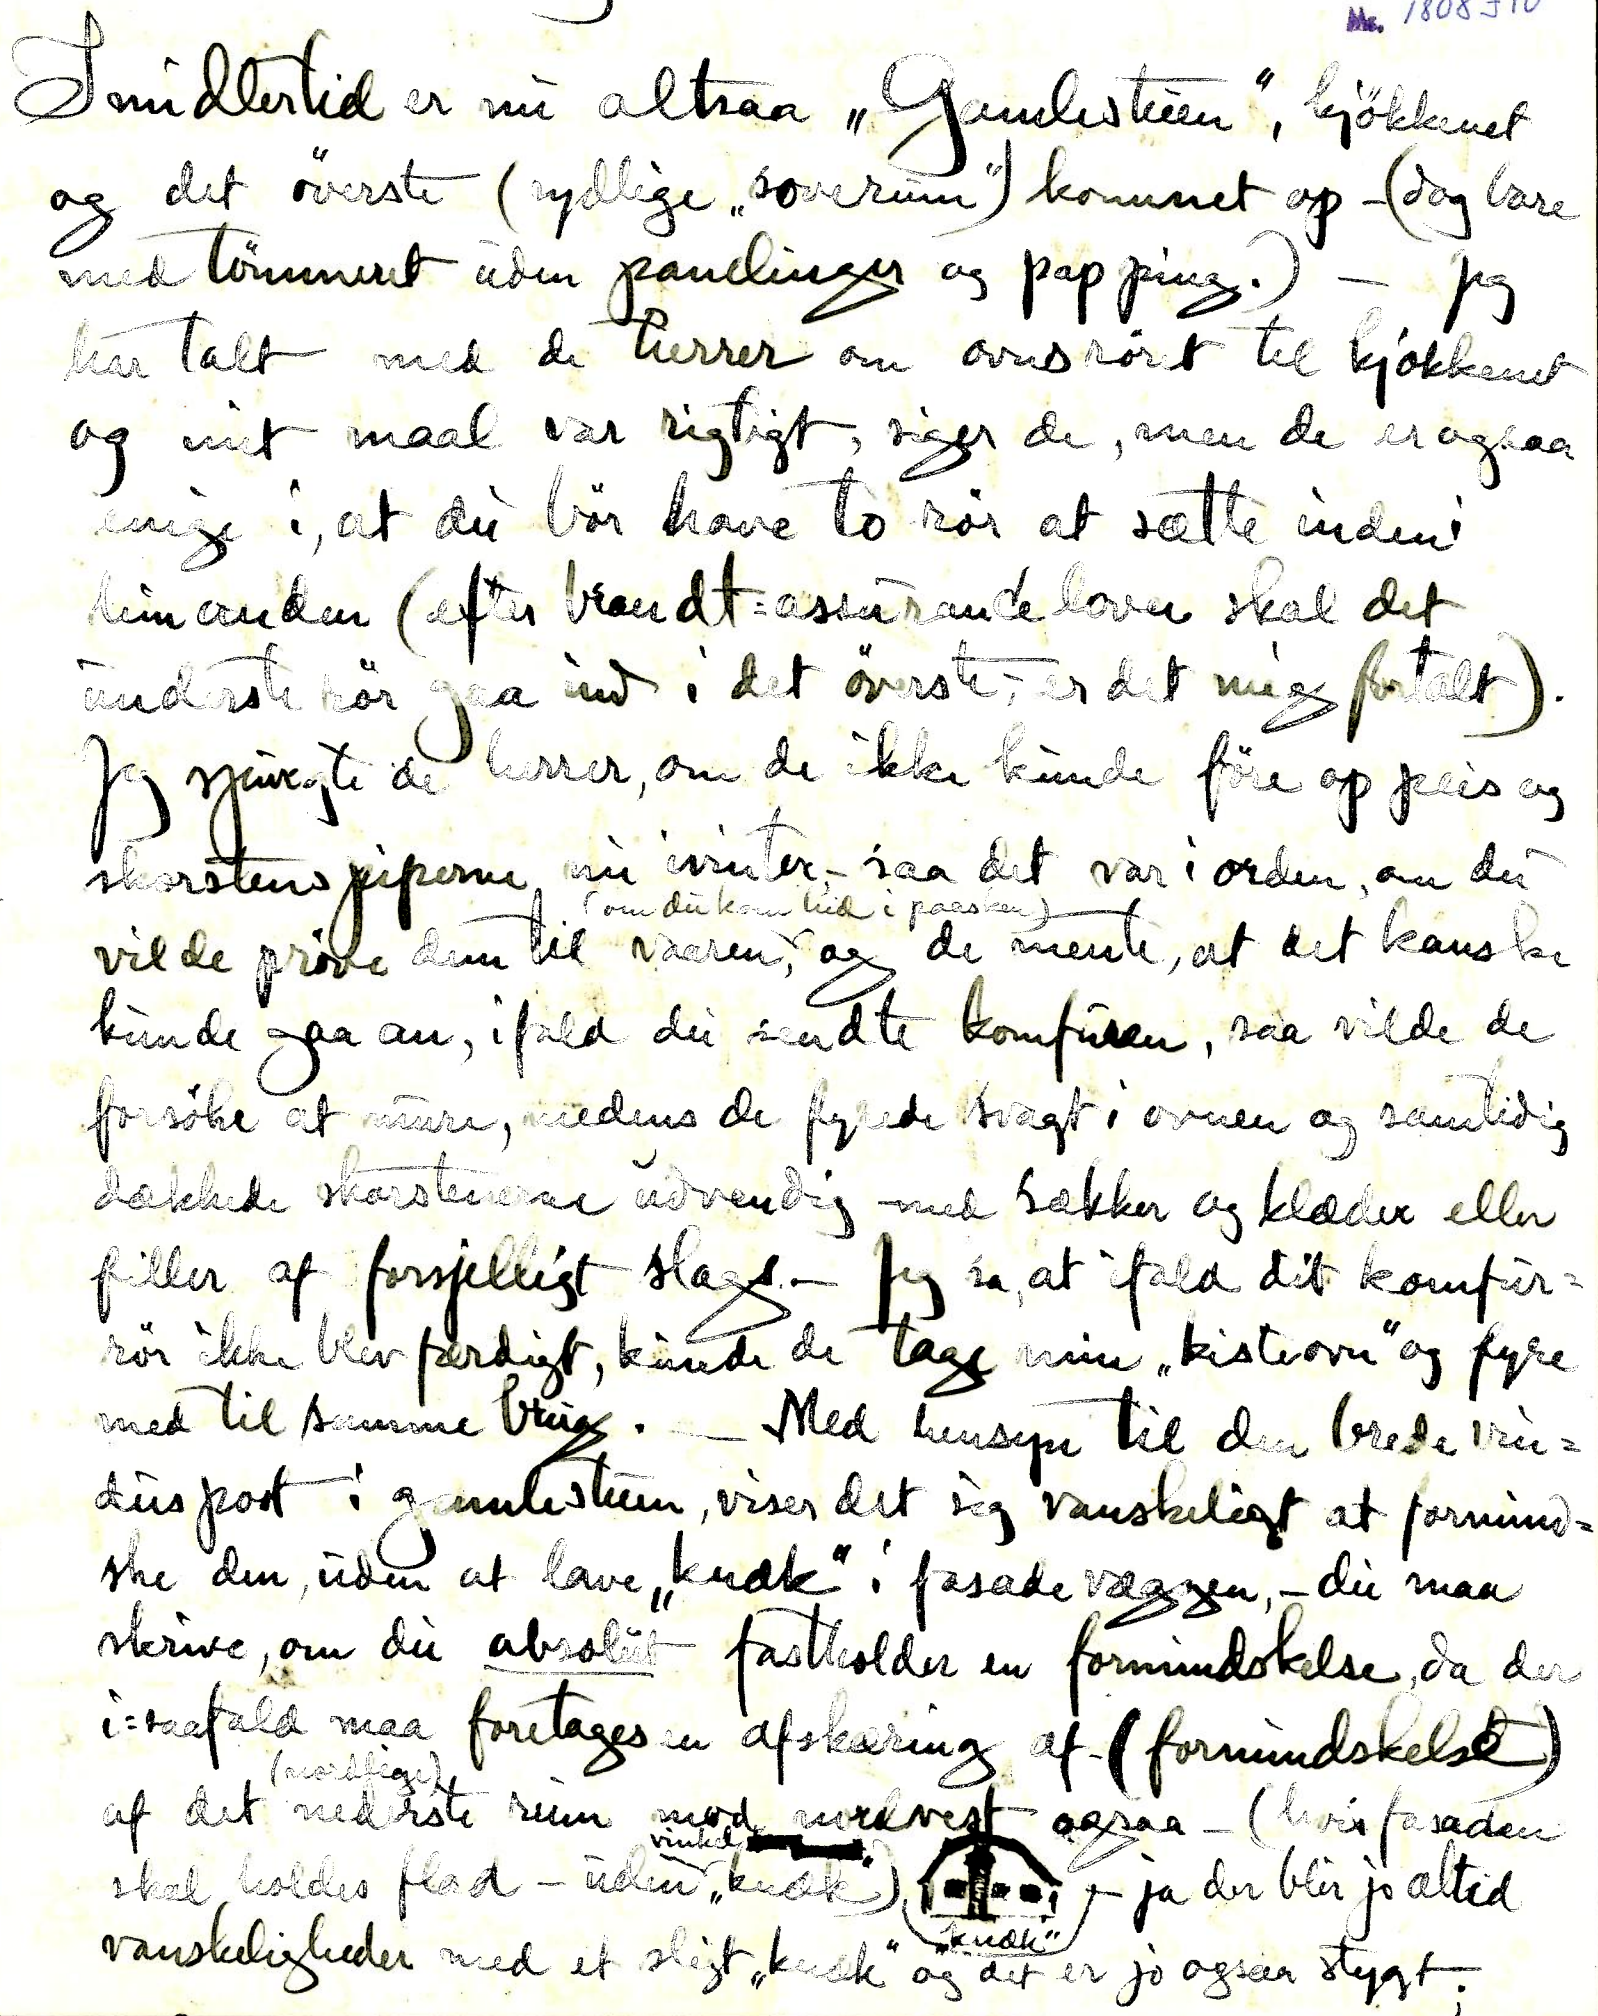 Ms. 1808 F10
Imidlertid er nu altsaa „Gamlestuen“, kjökkenet
og det överste (nydlige „soverum“) kommet op – (dog bare
med tömmeret uden panelinger og papping.) – Jeg
har talt med de herrer om ovnsröret til kjökkenet
og mit maal var rigtigt, siger de, men de er ogsaa
enige i, at du bör have to rör at sætte indeni
hinanden (efter brandt=assurancelover skal det
underste rör gaa ind i det överste, – er det mig fortalt).
Jeg spurgte de herrer, om de ikke kunde före op peis og
skorstenspiperne nu ivinter, – saa det var i orden, om du
(om du kom hid i paasken)
vilde pröve dem til vaaren, og de mente, at det kanske
kunde gaa an, ifald du sendte komfuren, saa vilde de
forsöke at mure, medens de fyrede svagt i ovnen og samtidig
dækkede skorstenerne udvendig med sækker og klæder eller
filler af forsjelligt slags. – Jeg sa, at ifald dit komfur=
rör ikke blev færdigt, kunde de tage min „kisteovn“ og fyre
med til samme brug. – Med hensyn til den brede vin=
duspost i gamlestuen, viser det sig vanskeligt at formind=
ske den, uden at lave „knæk“ i fasadevæggen, – du maa
skrive, om du absolut fastholder en formindskelse, da der
i=saafald maa foretages en afskæring af – (formindskelse)
(nordlige)
af det nederste rum mod nordvest ogsaa – (hvis fasaden
vinkel
skal holdes flad – uden „knæk“) – ja der blir jo altid
„knæk“
vanskeligheder med et sligt „knæk“ og det er jo ogsaa stygt;